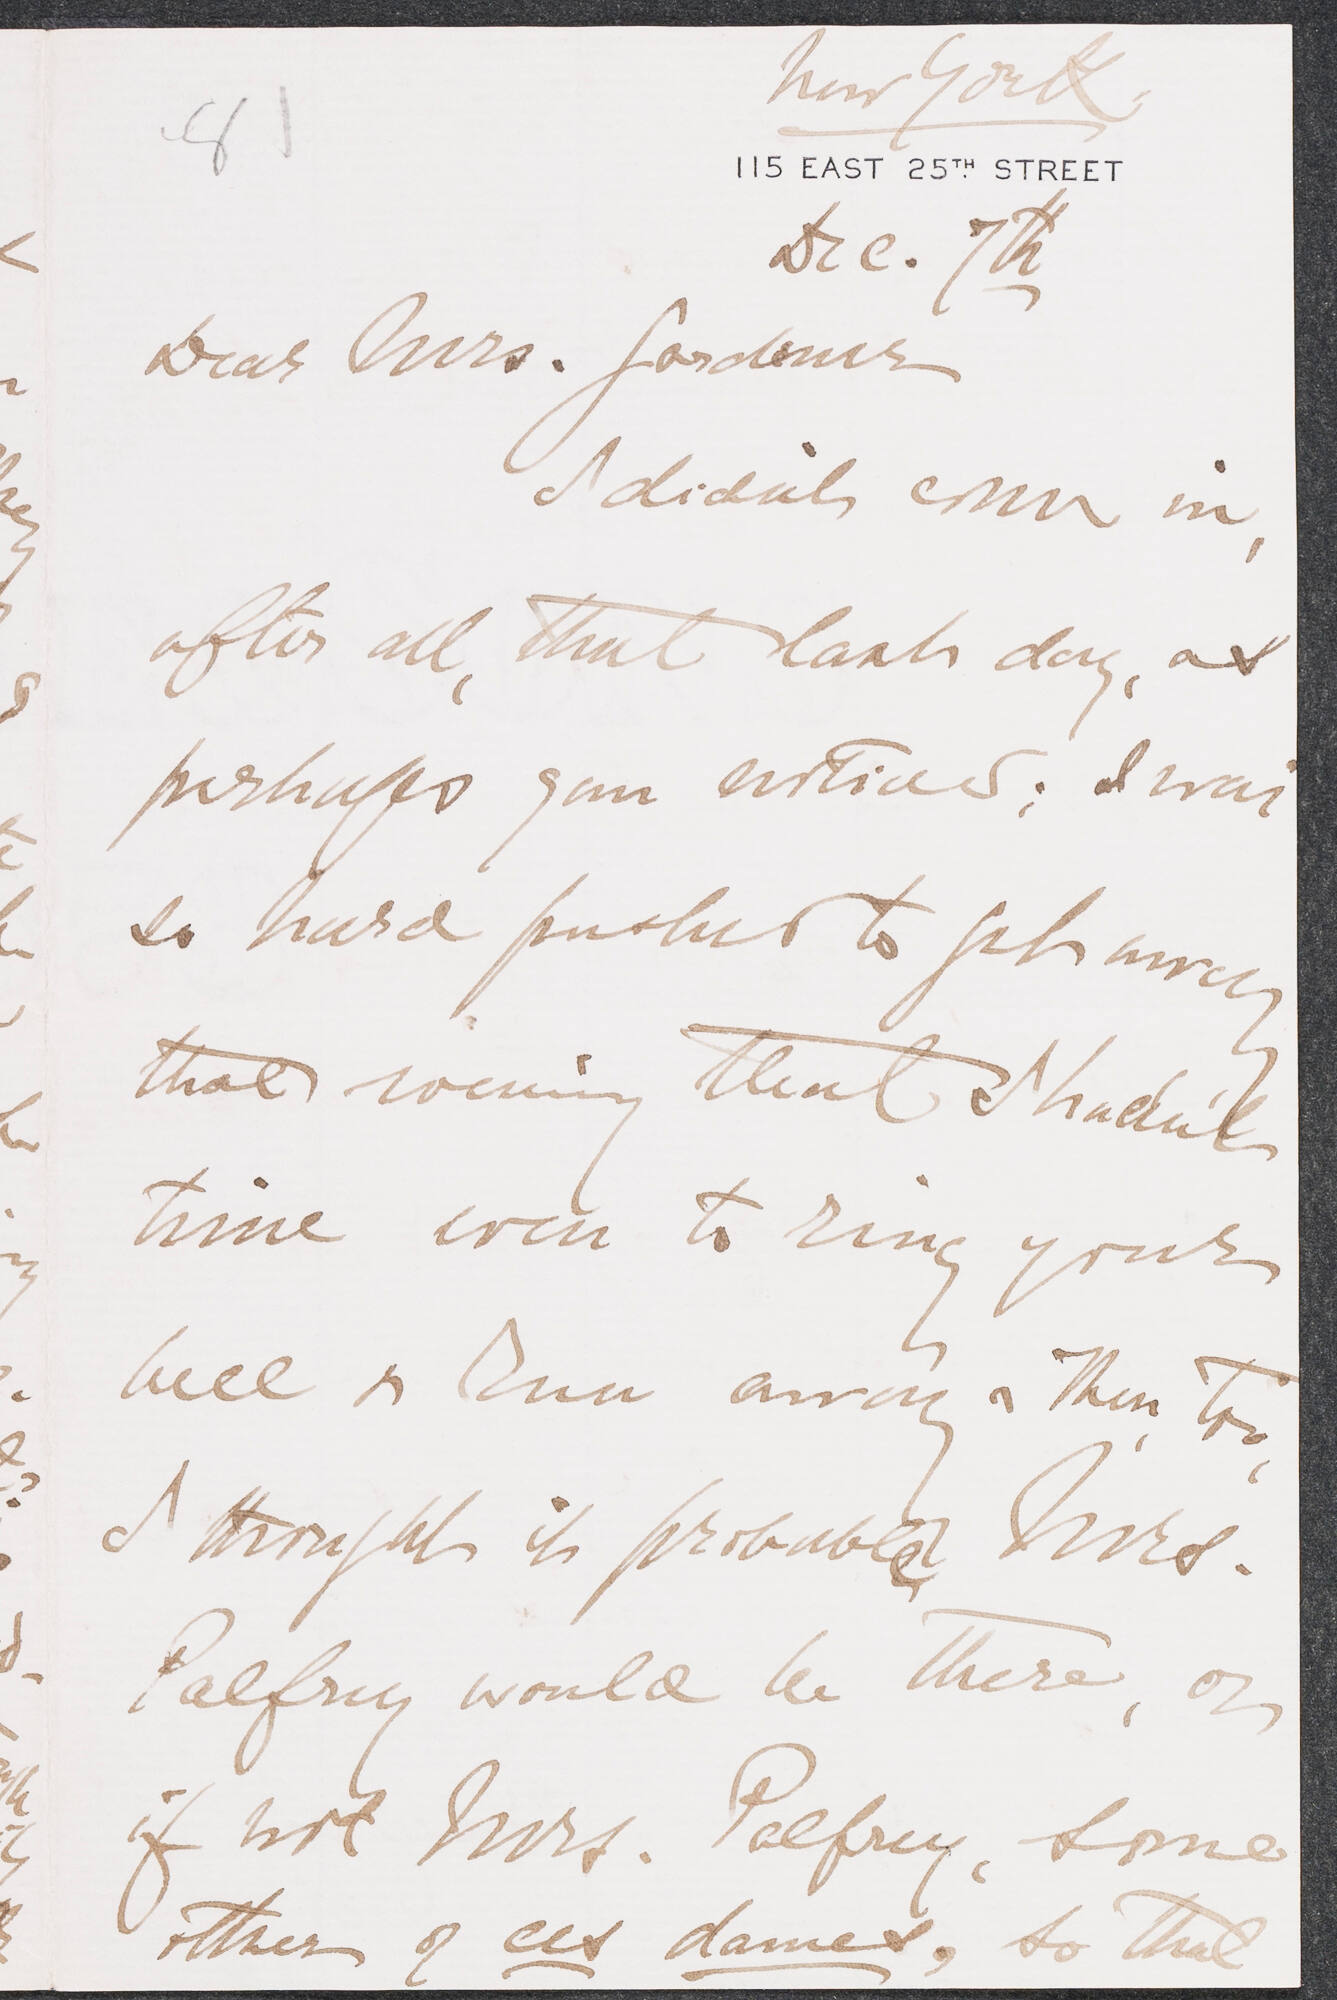 81
New York.
115 EAST 25TH STREET
Dec. 7th
Dear Mrs. Gardner
I didn't come in,
after all, that last day, as
perhaps you noticed; I was
so hard pushed to get away
that evening that I hadn't
time even to ring your
bell & run away & then, too,
I thought it probable Mrs.
Palfrey would be there, or
if not Mrs. Palfrey, some
other of ces dames, so that